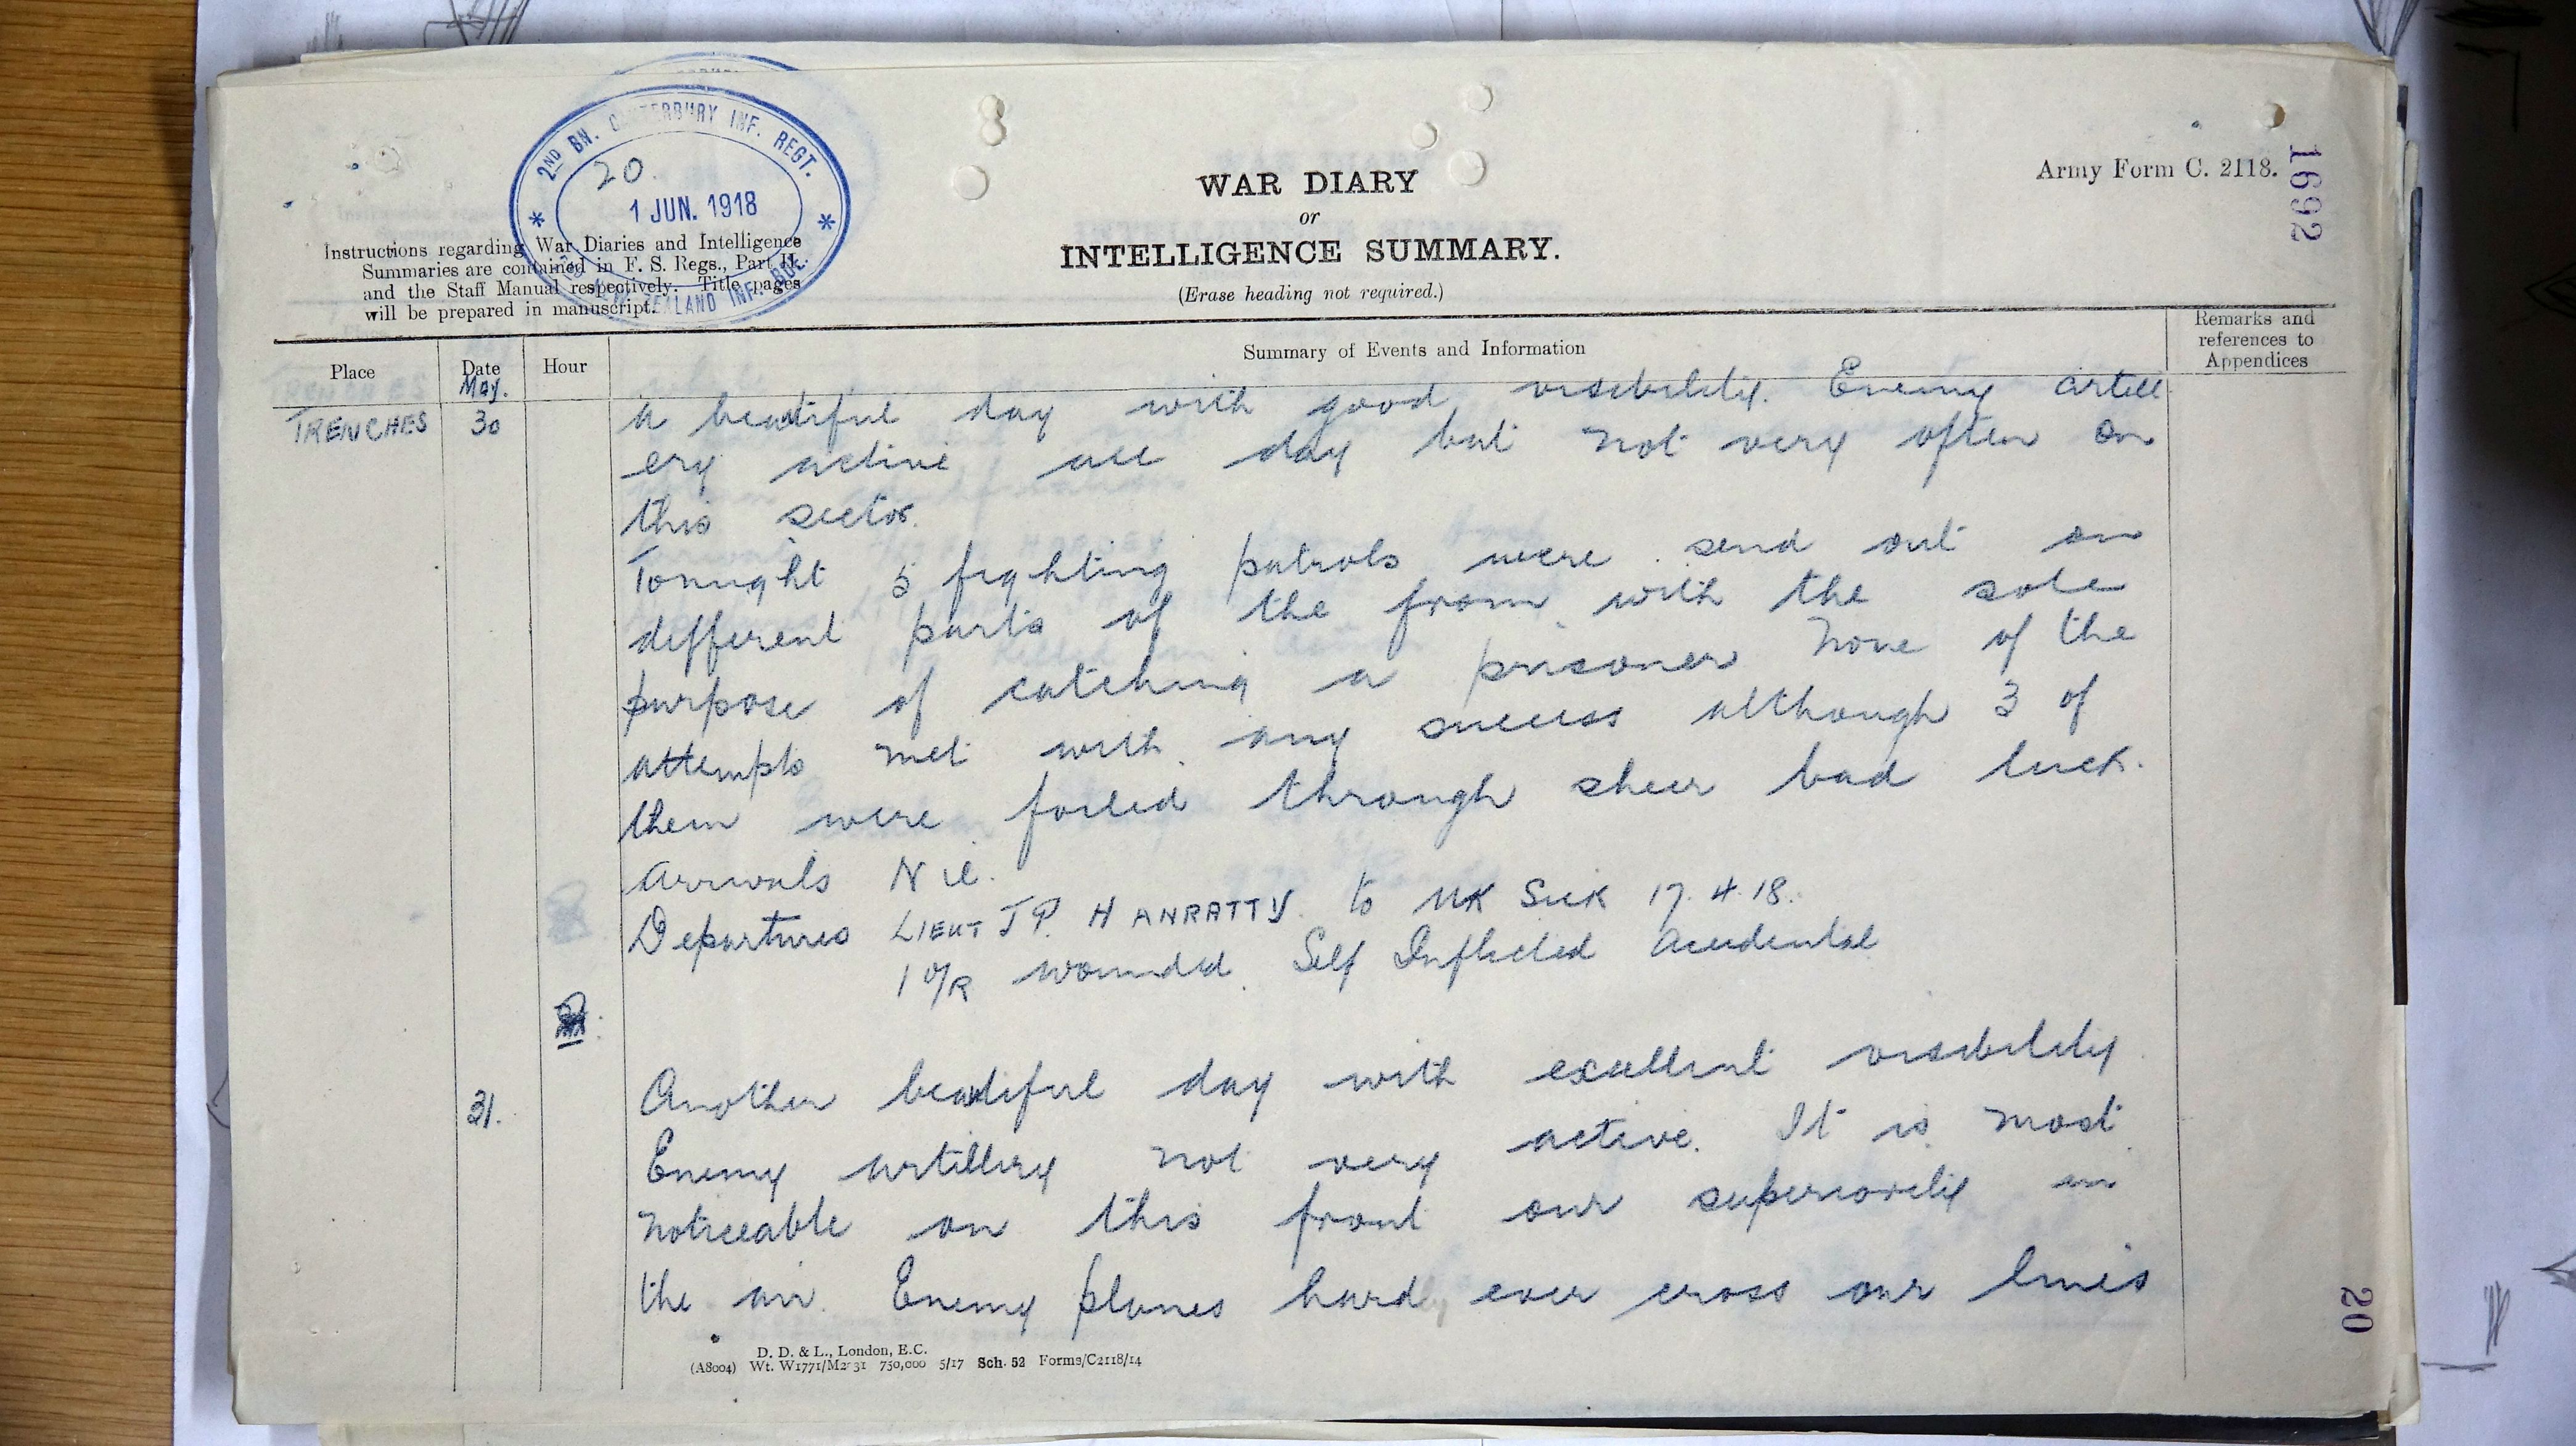 2ND BN. CANTERBURY INF. REGT.
20.
1 JUN. 1918
NEW ZEALAND INF. BDE.
Army Form C. 2118.
1692
WAR DIARY
or
INTELLIGENCE SUMMARY.
(Erase heading not required.)
Instructions regarding War Diaries and Intelligence
Summaries are contained in F. S. Regs., Part II.
and the Staff Manual respectively. Title pages
will be prepared in manuscript.
Place
Date
Hour
Summary of Events and Information
Remarks and
references to
Appendices
May.
TRENCHES 30 A beautiful day with good visibility. Enemy artill
ery active all day but not very often on
this sector.
Tonught 5 fighting patrols were send out on
different parts of the from with the sole
purpose of catching a prisoner None of the
attempts met with any success although 3 of
them were foiled through sheer bad luck.
Arrivals Nil.
Departures LIEUT J P. HANRATTY. to UK Sick 17.4.18.
1 O/R wounded. Self Inflicted Accidental
31. Another beautiful day with excellent visibility
Enemy artillery not very active. It is most
noticeable on this front our superiority in
the air. Enemy planes hardly ever cross our lines
D. D. & L., London, E.C.
(A8004) Wt. W1771/M2 31 750,000 5/17 Sch. 52 Forms/C2118/14
20